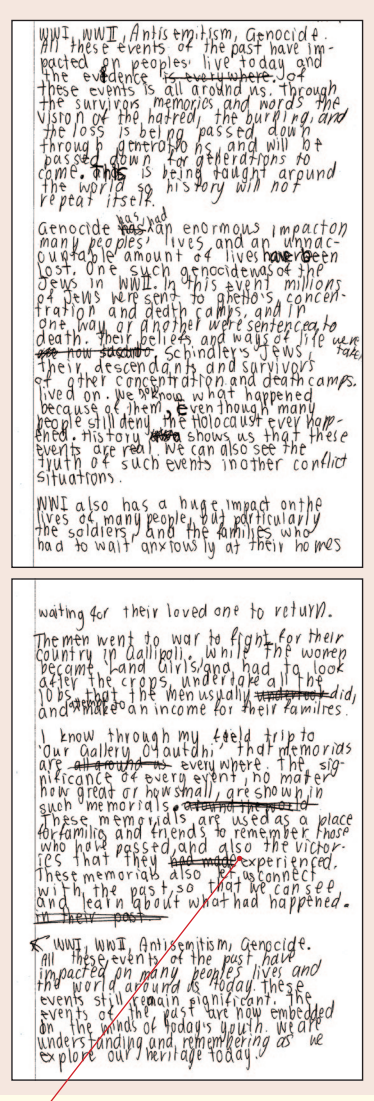 WWI, WWII, Antisemitism, Genocide.
All these events of the past have im-
pacted on peoples' live today and
the evidence is everywhere. of
these events is all around us. Through
the survivors memories and words the
vision of the hatred, the burning, and
the loss is being passed down
through generations and will be
passed down for generations to
come. This is being taught around
the world so history will not
repeat itself.
Genocide has has had an enormous impact on
many peoples' lives and an unnac-
ountable amount of lives have been
lost. One such genocide was of the
Jews in WWII. In this event millions
of Jews were sent to ghetto's, concen-
tration and death camps, and in
one way or another were sentenced to
death. Their beliefs and ways of life were
taken. Schindler's Jews,
their descendants and survivors
of other concentration and death camps.
lived on. We now know what happened
because of them, even though many
people still deny the Holocaust ever happ-
ened. History shows us that these
events are real. We can also see the
truth of such events in other conflict
situations.
WWI also has a huge impact on the
lives of many people, but particularly
the soldiers, and the families who
had to wait anxiously at their homes
waiting for their loved one to return.
The men went to war to fight for their
country in Gallipoli. While the women
became 'Land Girls' and had to look
after the crops, undertake all the
jobs that the men usually did,
and attempt to make an income for their families.
I know through my field trip to
'Our Gallery, O Tautahi', that memorials
are all around us everywhere. The sig-
nificance of every event, no mater
how great or how small, are shown in
such memorials. around the world
These memorials are used as a place
for familie and friends to remember those
who have passed, and also the victor-
ies that they had made experienced.
These memorials also let us connect
with the past, so that we can see
and learn about what had happened.
in their past.
WWI, WWII, Antisemitism, Genocide.
All these events of the past have
impacted on many peoples lives and
the world around us today. These
events still remain significant. The
events of the past are now embedded
on the minds of today's youth. We are
understanding and remembering as we
explore our heritage today.